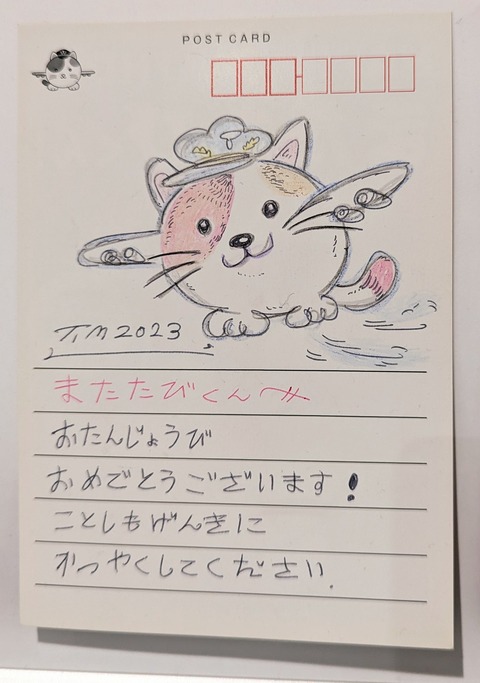 POST CARD
TIM 2023
またたびくんへ
おたんじょうび
おめでとうございます！
ことしもげんきに
かつやくしてください.